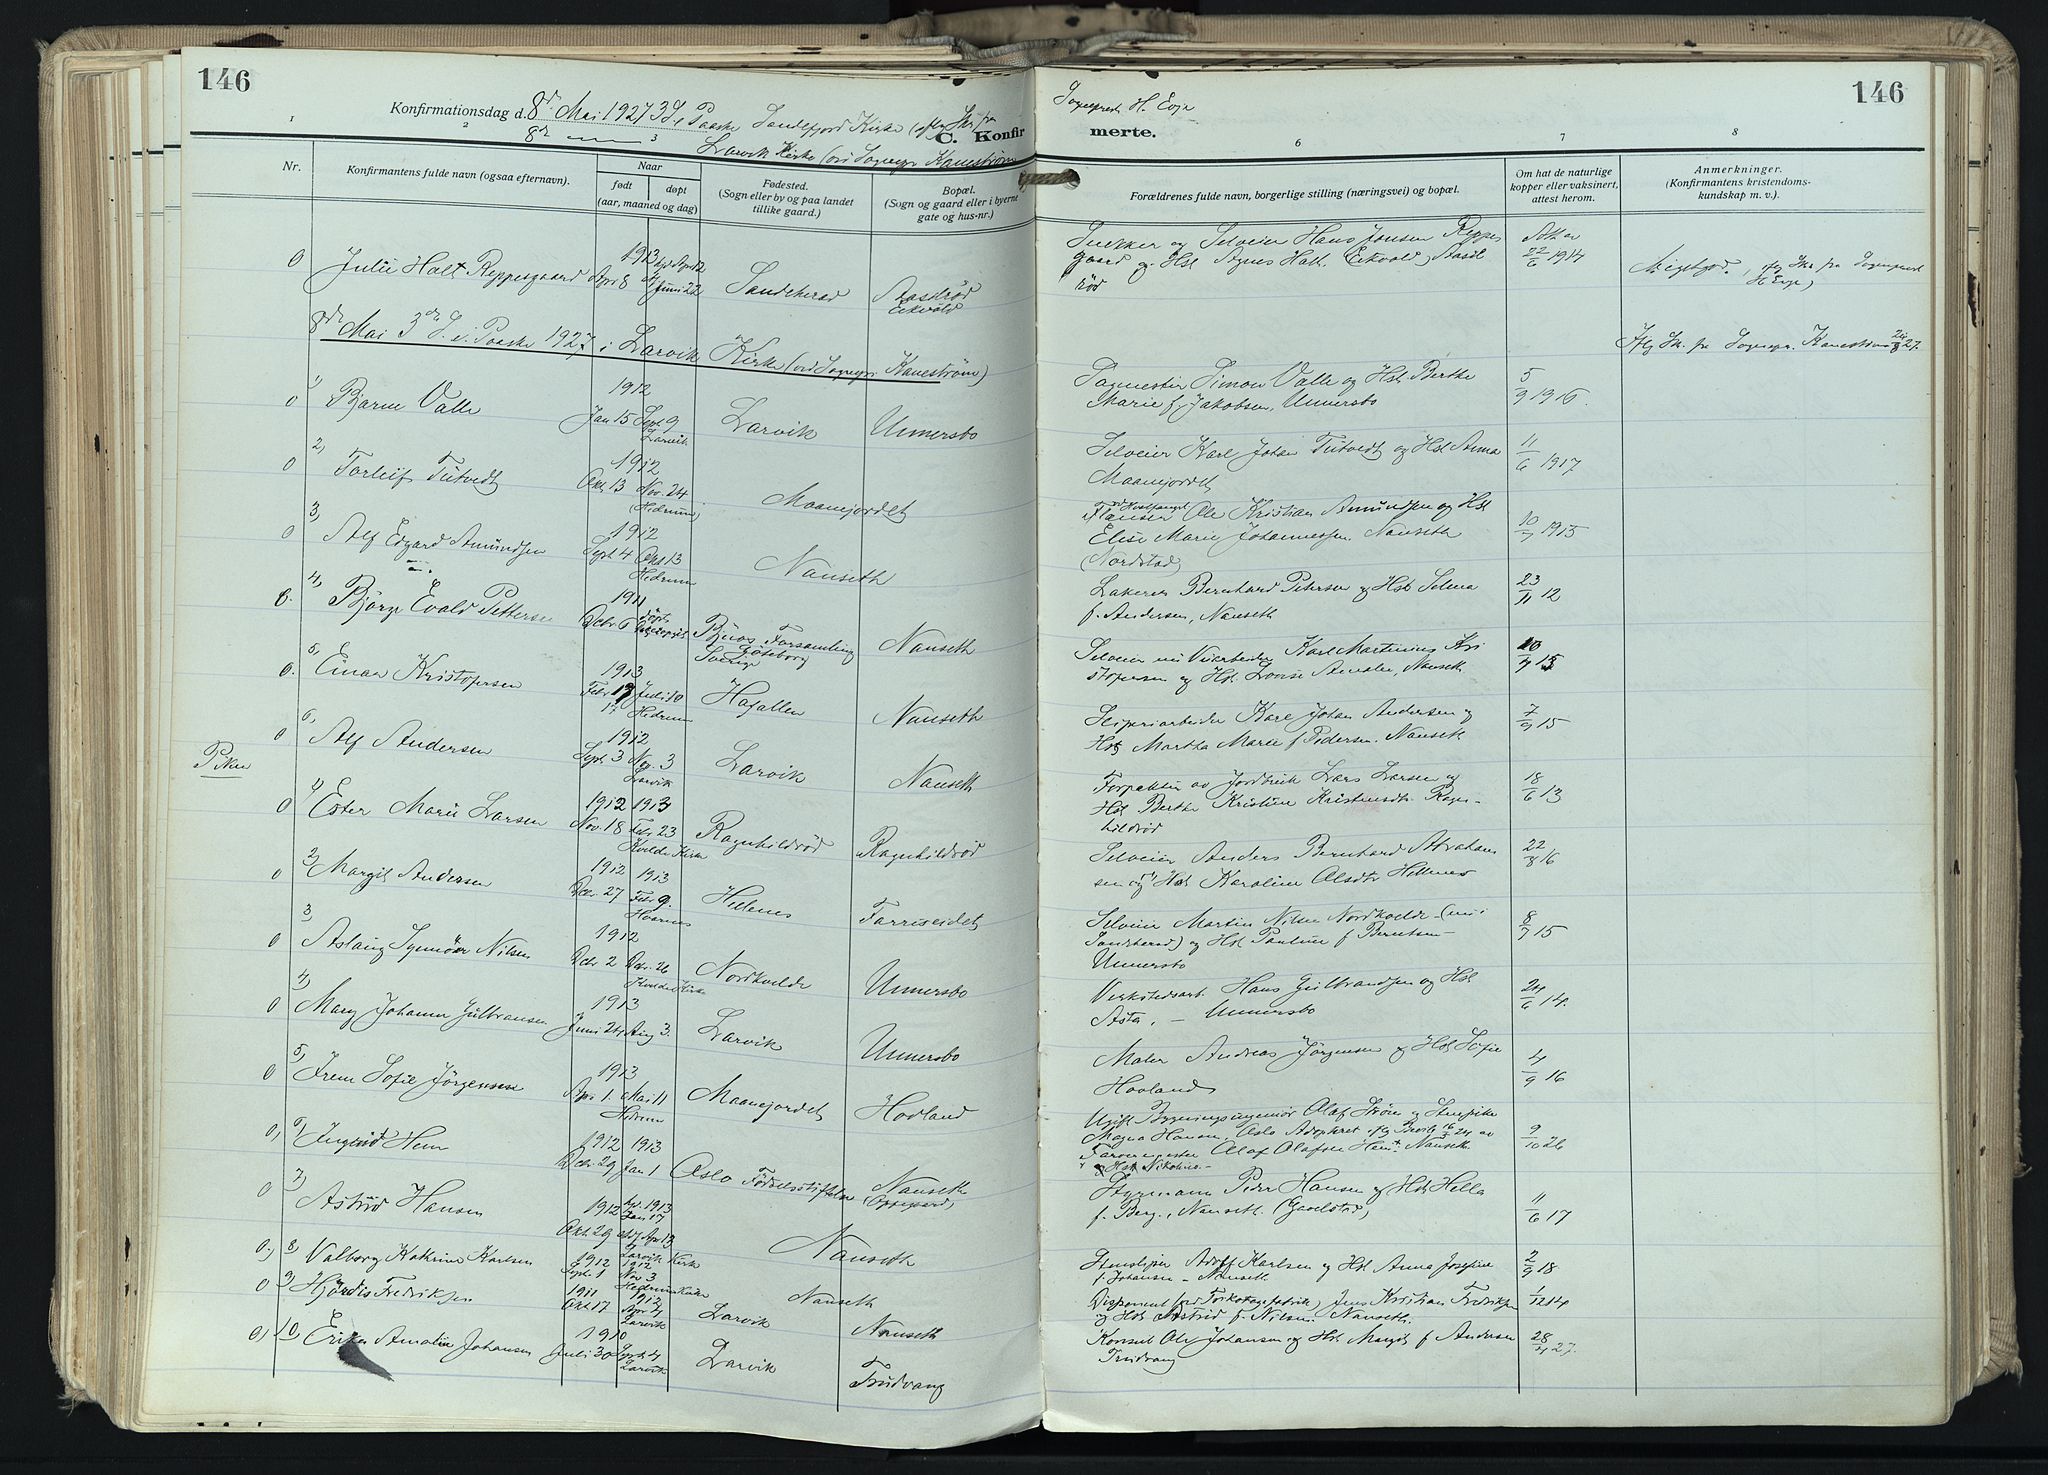 146
Konfirmationsdag d. 8de Mai 1927 3 S. e. Paaske Sandefjord Kirke (iflg Skr. fra
Sogneprest H. Evje
146
8de — Larvik Kirke (ved Sognepr. Kanestrøm
C. Konfir
merte.
1
2
3
6
7
8
Nr.
Konfirmantens fulde navn (ogsaa efternavn).
Naar
født
døpt
(aar, maaned og dag)
Fødested.
(Sogn eller by og paa landet
tillike gaard.)
Bopæl.
(Sogn og gaard eller i byerne
gate og hus-nr.)
Forældrenes fulde navn, borgerlige stilling (næringsvei) og bopæl.
Om hat de naturlige
kopper eller vaksinert,
attest herom.
Anmerkninger.
(Konfirmantens kristendoms-
kundskap m. v.)
0 Julie Holt Reppesgaard
1913
Apr 8
Juni 22
Sandeherad
Aasilrød
Eekvold
Snekker og Selveier Hans Jensen Reppes
gaard og Hst Agnes Holt. Eekvold, Aasil
rød
22/6 1914
Meget god. iflg Skr. fra Sogneprest
H Evje)
8de Mai 3die S. e. Paaske 1927 i Larvik Kirke (ved Sognepr. Kanestrøm)
Iflg Skr. fra Sognepr. Kanestrøm 27.
0 1) Bjarne Valle
1912
Jan 15 Sept 9
Larvik
Larvik
Unnersbo
Simon Valle og Hst Berthe
Marie f. Jakobsen, Unnersbo
5/9 1916.
0 2) Torleif Tutvedt
1912
Okt 13 Nov. 24
(Hedrum)
Maanejordet
Selveier Karl Johan Tutvedt og Hst Anna
Maanejordet
11/6 1917
0 3) Alf Edvard Amundsen
1912
Sept 4 Okt 13
Hedrum
Nanseth
Flenser ved Hvalfangst Ole Kristian Amundsen og Hst
Elise Marie Johannessen. Nanseth
(Nordstad)
10/7 1915
0. 4) Børge Evald Pettersen
1911
Dcbr 6
Forsamling
Göteborg
Sverige
Nanseth
Bernhard Petersen og Hst Selma
f. Andersen, Nanseth
23/11 12
0. 5) Einar Kristofersen
1913
Febr 17 Juli 10
17 Hedrum
Hagallen
Nanseth
Selveier nu Veiarbeider Karl Martinius Kri
stofersen og Hst. Lovise Amalie, Nanseth
10/7 15
0 6) Alf Andersen
1912
Sept. 3 Nov. 3
Larvik
Larvik
Nanseth
Sliperiarbeider Karl Johan Andersen og
Hst Martha Marie f Pedersen. Nanseth
7/9 15
Piker
0 1) Ester Marie Larsen
1912 1913
Nov. 18 Febr 23
Kvelde Kirke
Ragnhildrød
Ragnhildrød
Forpakter av Jordbruk Lars Larsen og
Hst Berthe Kristine Kristensdtr Ragn-
hildrød
18/6 13
0 2) Margit Andersen
1912 1913
Dcbr. 27 Febr 9.
Hvarnes
Hellenes
Farriseidet
Selveier Anders Bernhard Abraham
sen og Hst Karoline Olsdtr Hellenes
22/8 16
0 3) Aslaug Synnøve Nilsen
1912
Dcbr 2 Dcbr. 26
Kvelde Kirke
Nordkvelde
Unnersbo
Selveier Martin Nilsen Nordkvelde (nu i
Sandeherad) og Hst Pauline f Berntsen—
Unnersbo
8/7 15
0 4) Mary Johanne Gulbransen
1913
Juni 24 Aug 3.
Larvik
Unnersbo
Verkstedsarb. Hans Gulbrandsen og Hst
Asta. — Unnersbo
24/6 14.
0 5) Irene Sofie Jørgensen
1913
Apr. 1. Mai 11
Hedrum
Maanejordet
Hovland
Maler Andreas Jørgensen og Hst Sofie
Hovland
4/9 16
0, 6) Ingrid Hem
1912 1913
Dcbr. 29 Jan 1
Oslo Fødselsstiftelse
Nanseth
Ugift Bygningsingeniør Olaf Strøm og Henrikke
Magna Hansen, Oslo Adopteret iflg Bevilg 24 av
Olaf Olafsen Hem Nanseth
og Hst Nikoline—
9/10 26
0 7) Astrid Hansen
1912
1913
Jan 17
Okt. 29 Apr 13
Larvik Kirke
Nanseth
Styrmann Peder Hansen og Hst Hella
f. Berg, Nanseth. (Gavelstad)
11/6 17
0, 8) Valborg Kathrine Karlsen
1912 1912
Sept. 1 Nov 3
Hedrum Kirke
Nanseth
Stensliper Adolf Karlsen og Hst Anna Josefine
f. Johansen — Nanseth
2/9 18
0 9) Hjørdis Fredriksen
1911 1912
Okt. 17 Apr 4
Larvik
Larvik
Nanseth
Disponent Jens Kristian Fredriksen
og Hst Astrid f. Nilsen. Nanseth.
1/12 14
0, 10 Erika Amalie Johansen
1910
Juli 30 Sept 4
Larvik
Larvik
Trudvang
Konsul Ole Johansen og Hst Margit f Andersen
Trudvang
28/4 27.